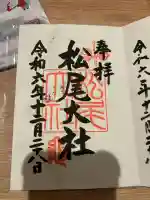 奉拝
松尾大社
令和六年十二月二八日
令和六年十二